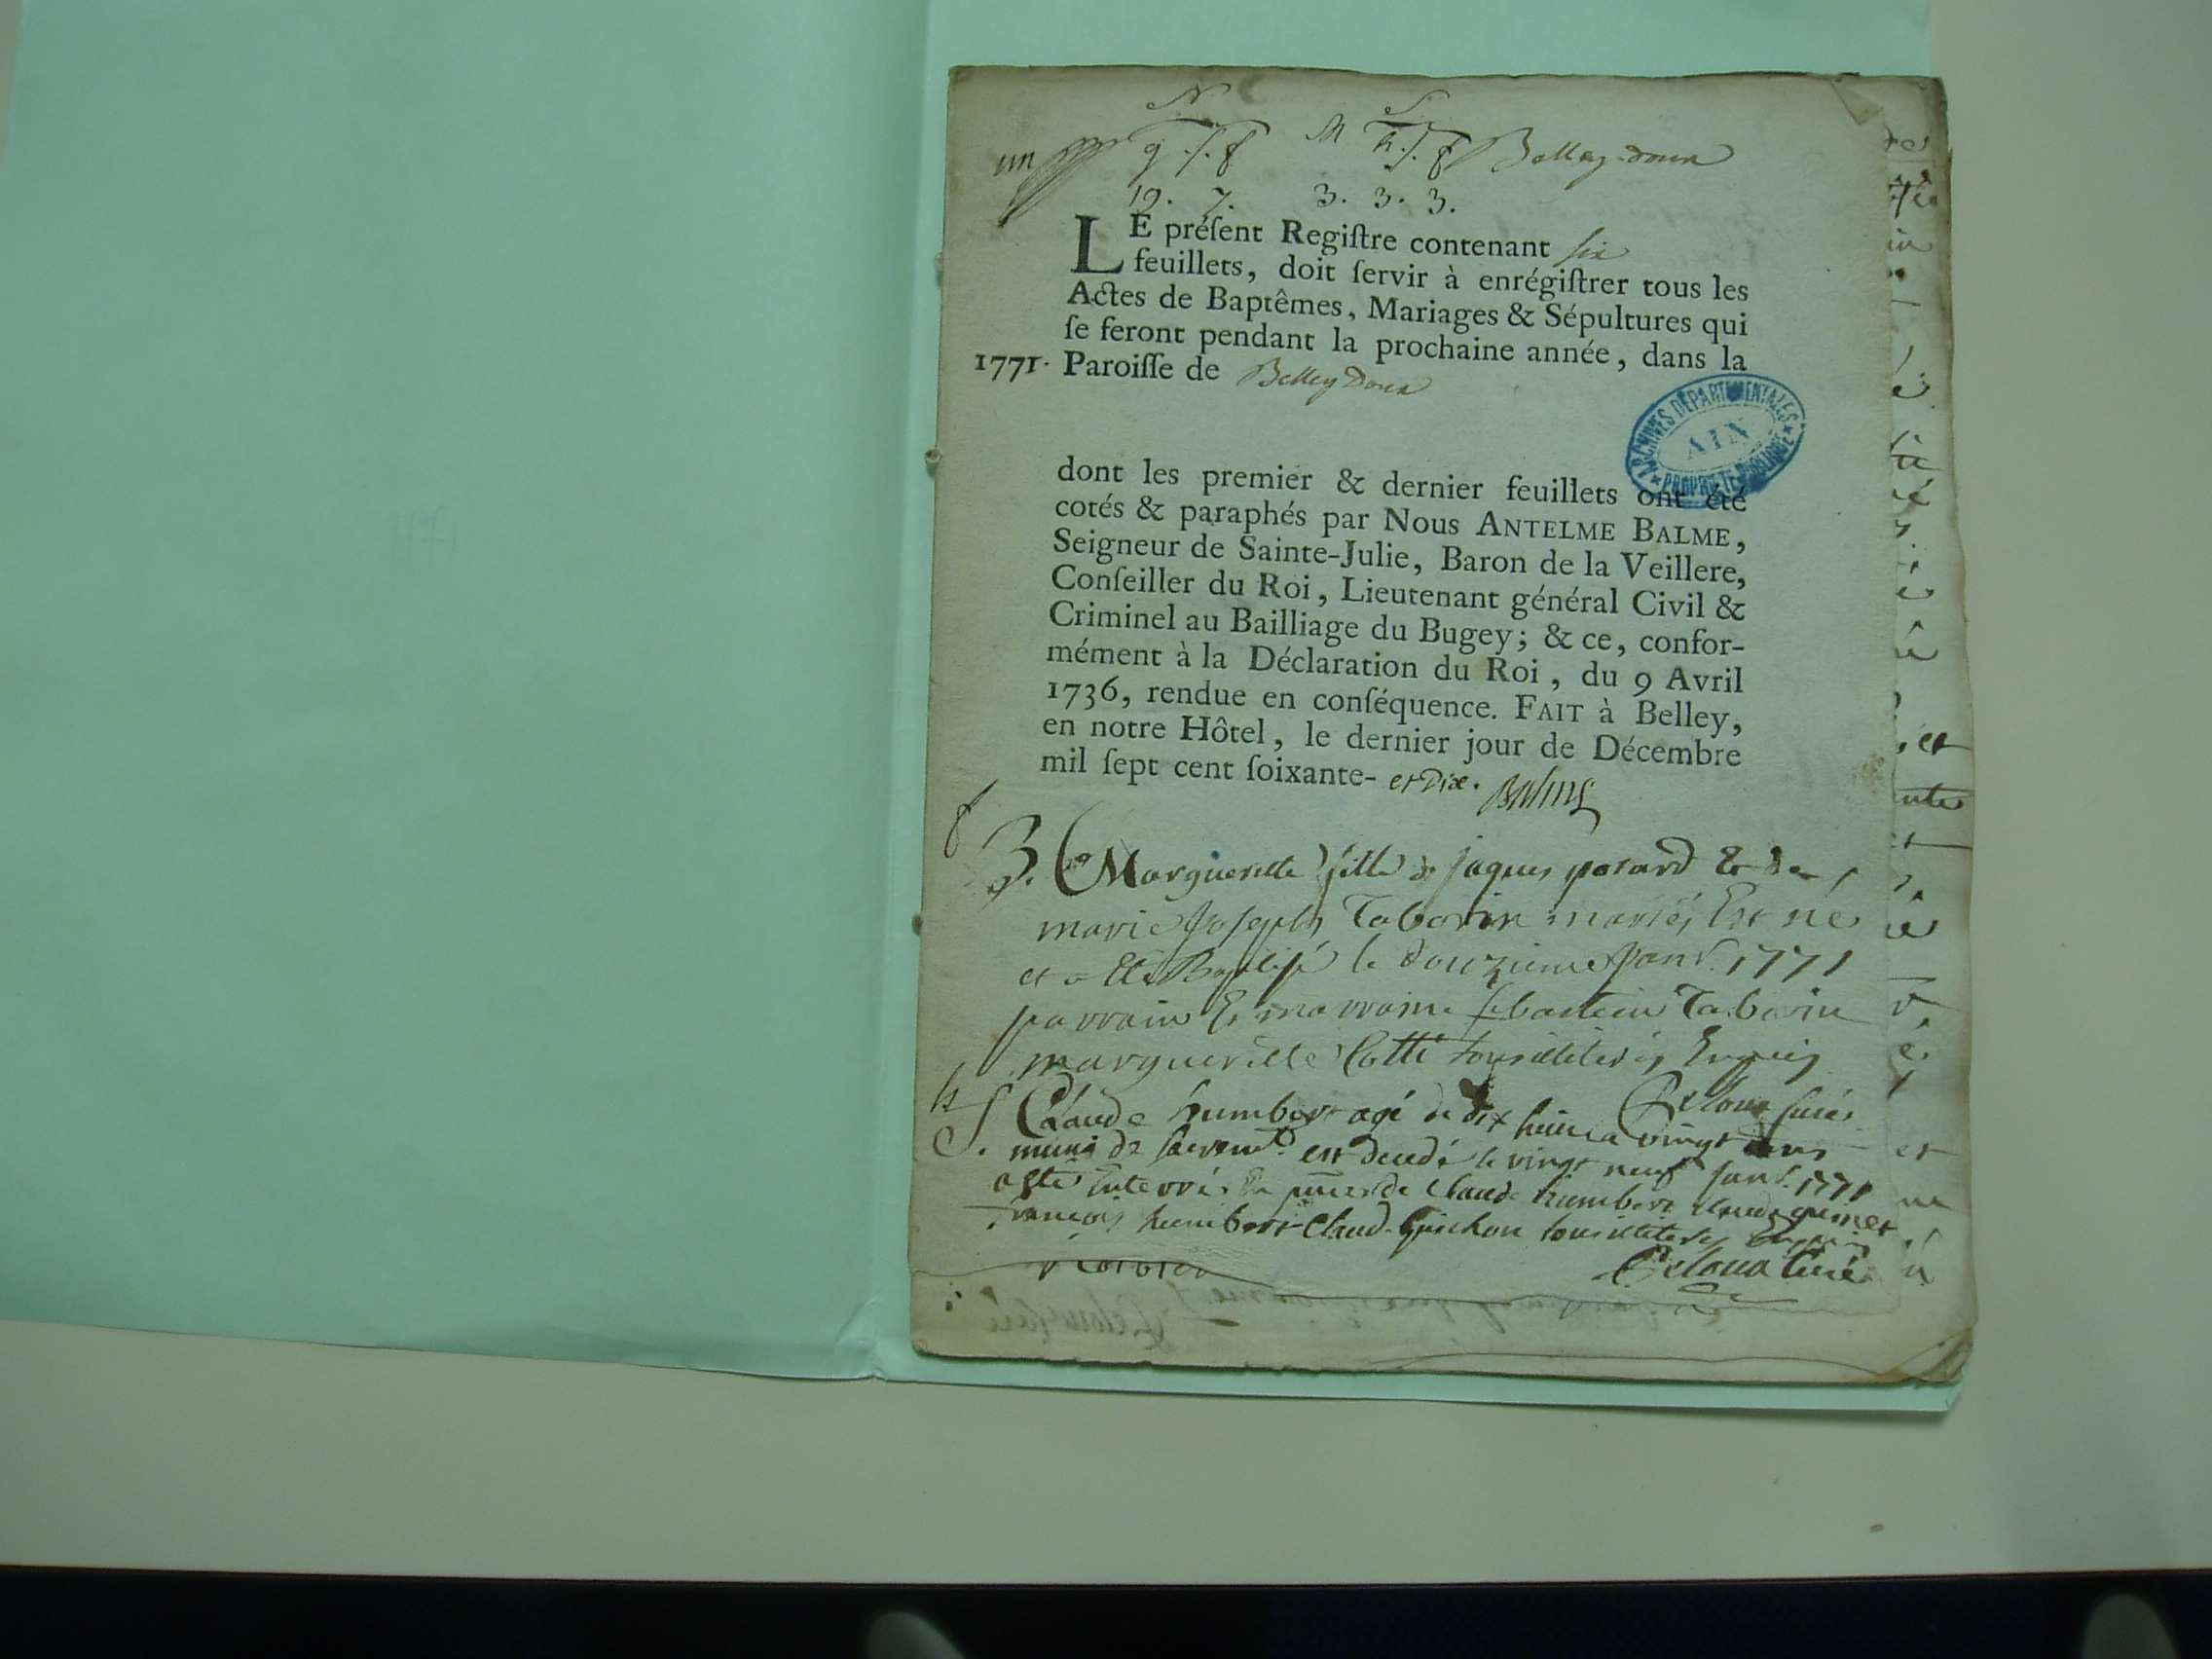 N S
un g. f. M h. f. Belleydoux
19. 7. 3. 3. 3.
LE préſent Regiſtre contenant ſix
feuillets, doit ſervir à enrégiſtrer tous les
Actes de Baptêmes, Mariages & Sépultures qui
ſe feront pendant la prochaine année, dans la
1771. Paroiſſe de Belleydoux
ARCHIVES DÉPARTEMENTALES
AIN
* PROPRIÉTÉ PUBLIQUE *
dont les premier & dernier feuillets ont été
cotés & paraphés par Nous ANTELME BALME,
Seigneur de Sainte-Julie, Baron de la Veillere,
Conſeiller du Roi, Lieutenant général Civil &
Criminel au Bailliage du Bugey; & ce, confor-
mément à la Déclaration du Roi, du 9 Avril
1736, rendue en conſéquence. FAIT à Belley,
en notre Hôtel, le dernier jour de Décembre
mil ſept cent ſoixante- et Dix. Balme
f
B. Marguerille fille de jaques porard & de
marie Joseph Tabarin mariés Est né
et a Eté Baptisé le douzieme Janv. 1771
parrain Et marraine sebastein Tabarin
marguerille Cotti tous illiterés Enquis
Curé
h
S. Claude humbert agé de dix huit a vingt ans
muni de sacrem. est decedé le vingt neuf janv. 1771
a esté interré En pnce de Claude humbert
françois humbert Claud tous illiterés Enquis
Curé